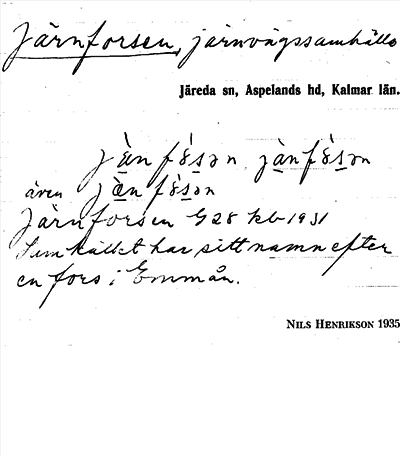 Järnforsen, järnvägssamhälle
Järeda sn, Aspelands hd, Kalmar län.
även
Järnforsen G 28 kb 1931
Samhället har sitt namn efter
en fors i Emmån.
NILS HENRIKSON 1935